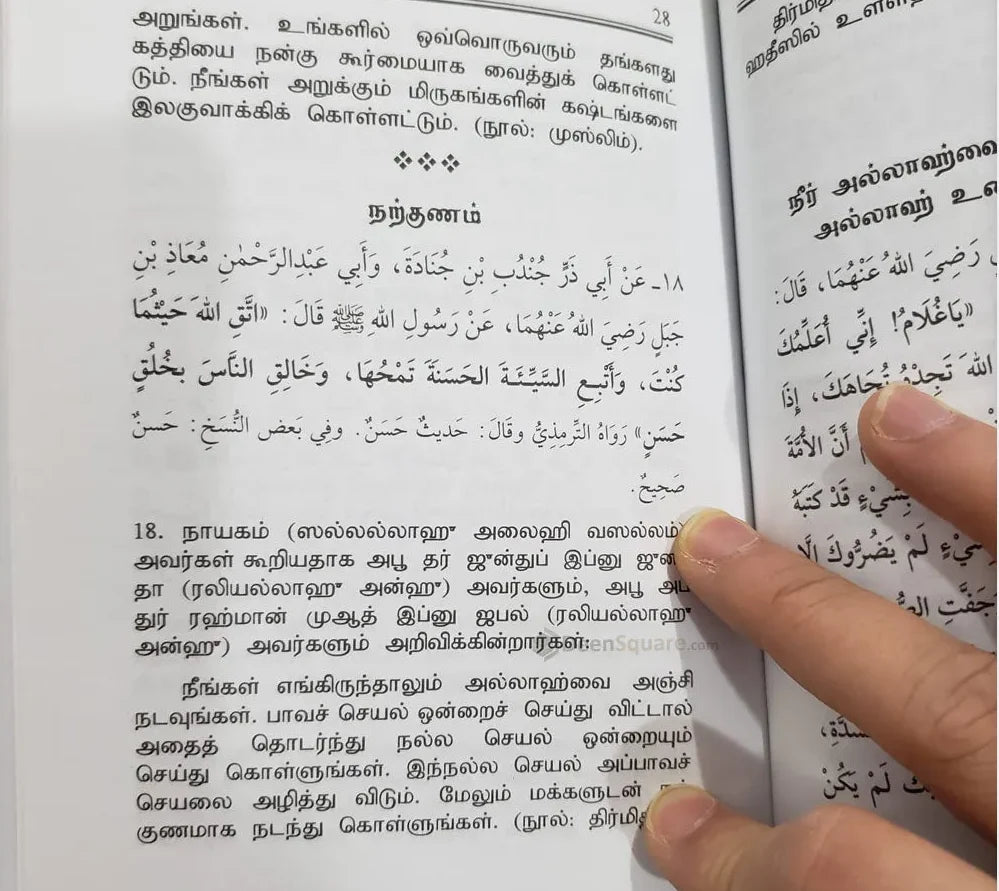 28
அறுங்கள். உங்களில் ஒவ்வொருவரும் தங்களது
கத்தியை நன்கு கூர்மையாக வைத்துக் கொள்ளட்
டும். நீங்கள் அறுக்கும் மிருகங்களின் கஷ்டங்களை
இலகுவாக்கிக் கொள்ளட்டும். (நூல்: முஸ்லிம்).
நற்குணம்
١٨ـ عَنْ أَبِي ذَرٍّ جُنْدُبِ بْنِ جُنَادَةَ، وَأَبِي عَبْدِالرَّحْمٰنِ مُعَاذِ بْنِ
جَبَلٍ رَضِيَ اللهُ عَنْهُمَا، عَنْ رَسُولِ اللهِ ﷺ قَالَ: «اتَّقِ اللهَ حَيْثُمَا
كُنْتَ، وَأَتْبِعِ السَّيِّئَةَ الحَسَنَةَ تَمْحُهَا، وَخَالِقِ النَّاسَ بِخُلُقٍ
حَسَنٍ» رَوَاهُ التِّرْمِذِيُّ وقَالَ: حَدِيثٌ حَسَنٌ. وفِي بَعْضِ النُّسَخِ: حَسَنٌ
صَحِيحٌ.
18. நாயகம் (ஸல்லல்லாஹு அலைஹி வஸல்லம்)
அவர்கள் கூறியதாக அபூ தர் ஜுன்துப் இப்னு
தா (ரலியல்லாஹு அன்ஹு) அவர்களும், அபூ
துர் ரஹ்மான் முஆத் இப்னு ஜபல் (ரலியல்லாஹு
அன்ஹு) அவர்களும் அறிவிக்கின்றார்கள்:
DeenSquare.com
நீங்கள் எங்கிருந்தாலும் அல்லாஹ்வை அஞ்சி
நடவுங்கள். பாவச் செயல் ஒன்றைச் செய்து விட்டால்
அதைத் தொடர்ந்து நல்ல செயல் ஒன்றையும்
செய்து கொள்ளுங்கள். இந்நல்ல செயல் அப்பாவச்
செயலை அழித்து விடும். மேலும் மக்களுடன்
குணமாக நடந்து கொள்ளுங்கள். (நூல்:
ஹதீஸில்
நீர் அல்லாஹ்வை
அல்லாஹ்
رَضِيَ اللهُ عَنْهُمَا، قَالَ:
«يَاغُلَامُ! إِنِّي أُعَلِّمُكَ
اللهَ تَجِدْهُ تُجَاهَكَ، إِذَا
أَنَّ الأُمَّةَ
بِشَيْءٍ قَدْ كَتَبَهُ
لَمْ يَضُرُّوكَ
جَفَّتِ
لَمْ يَكُنْ